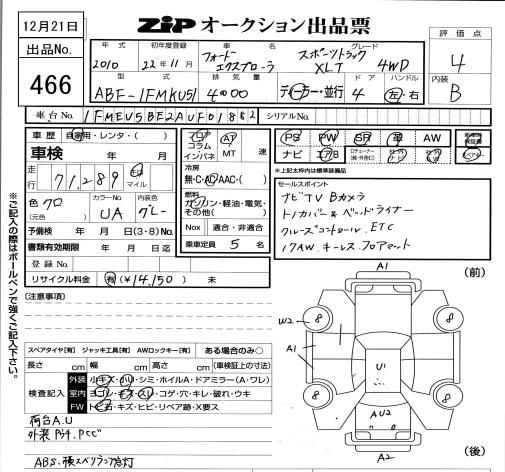 12月21日
ZiP オークション出品票
出品No.
466
年式 初年度登録 車名 グレード
2010 22年11月 フォード エクスプローラ スポーツトラック XLT 4WD
型式 排気量 ドア ハンドル
ABF-1FMKU51 4000 ディーラー・並行 4 左・右
評価点
4
内装
B
車台No. 1FMEU5BE2AUF01882 シリアルNo.
車歴 自家用・レンタ( )
車検 年 月
走行 71,289 キロ マイル
色 クロ (元色) カラーNo. UA 内装色 グレー
予備検 年 月 日(3・8)No
書類有効期限 年 月 日迄
登録No.
リサイクル料金 有(¥14,150) 未
フロア コラム インパネ
AT MT 速
冷房
無・C・AC・AAC・( )
燃料
ガソリン・軽油・電気・その他( )
Nox 適合・非適合
乗車定員 5 名
PS PW SR 革 AW
ナビ エアB
※上記太枠内は標準装備品
セールスポイント
ナビTV Bカメラ
トノカバー & ベッドライナー
クルーズコントロール、ETC
17AW、キーレス、フロアマット
(注意事項)
スペアタイヤ[有] ジャッキ工具[有] AWロックキー[有] ある場合のみ○
長さ cm 幅 cm 高さ cm (車検証上の寸法)
検査記入
外装 小キズ・小凹・シミ・ホイルA・ドアミラー(A・ワレ)
室内 ヨゴレ・キズ・スレ・コゲ・穴・キレ・破れ・ウキ
FW トビ石・キズ・ヒビ・リペア跡・X要ス
荷台A.U
ABS、横スベリランプ点灯
※ご記入の際はボールペンで強くご記入下さい。
(前)
A1
8 8
W2
A1
1
U1
8 8
AU2
A2
(後)